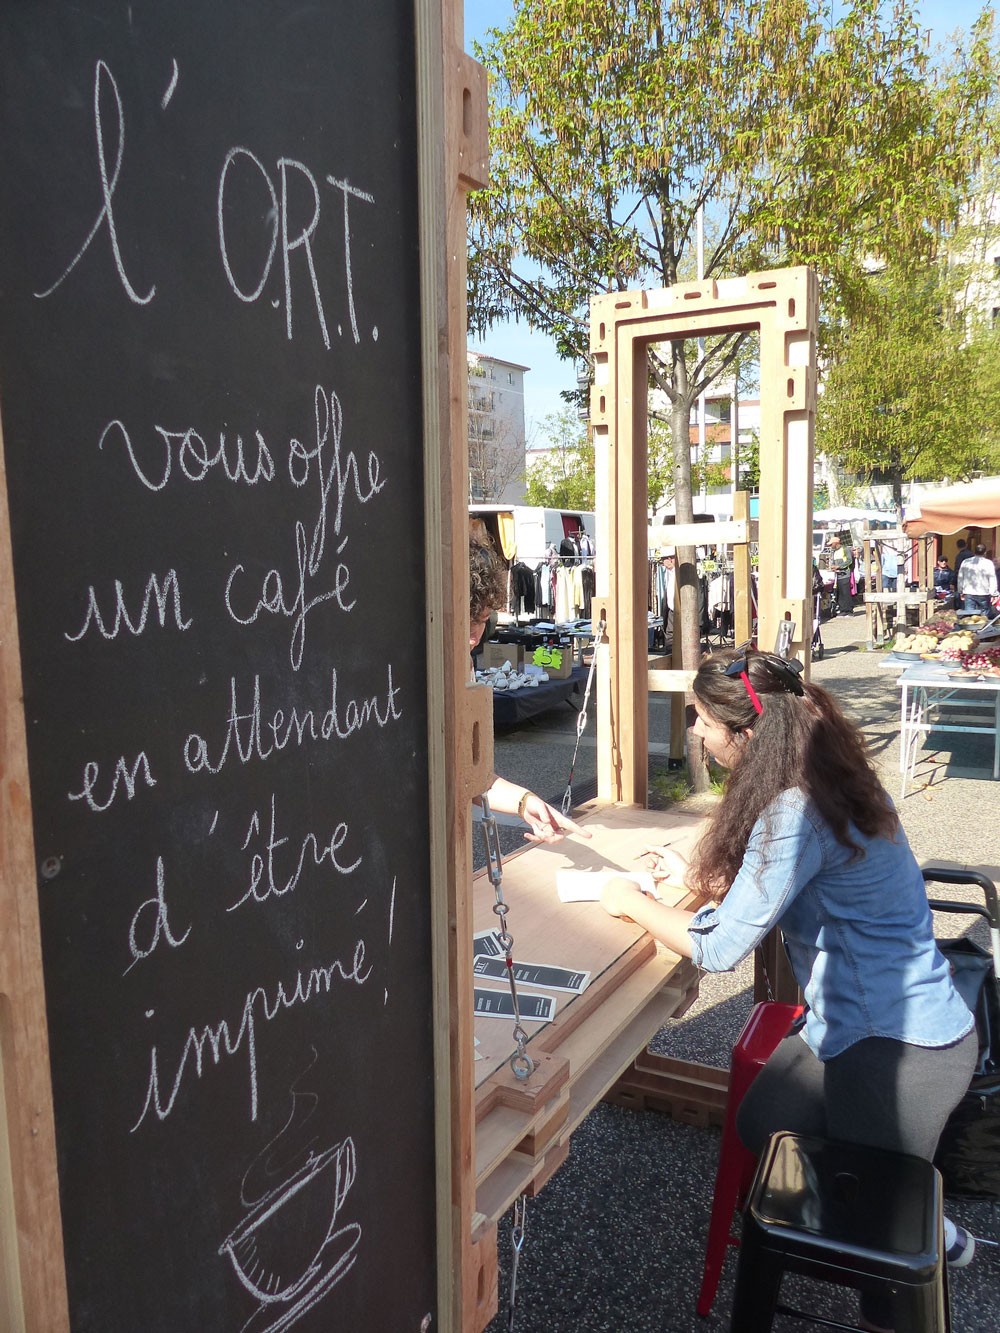 l'O.R.T.
vous offre
un café
en attendant
d'être
imprimé!